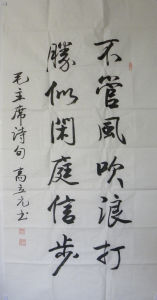 不管風吹浪打
勝似閑庭信步
毛主席詩句 高立元书